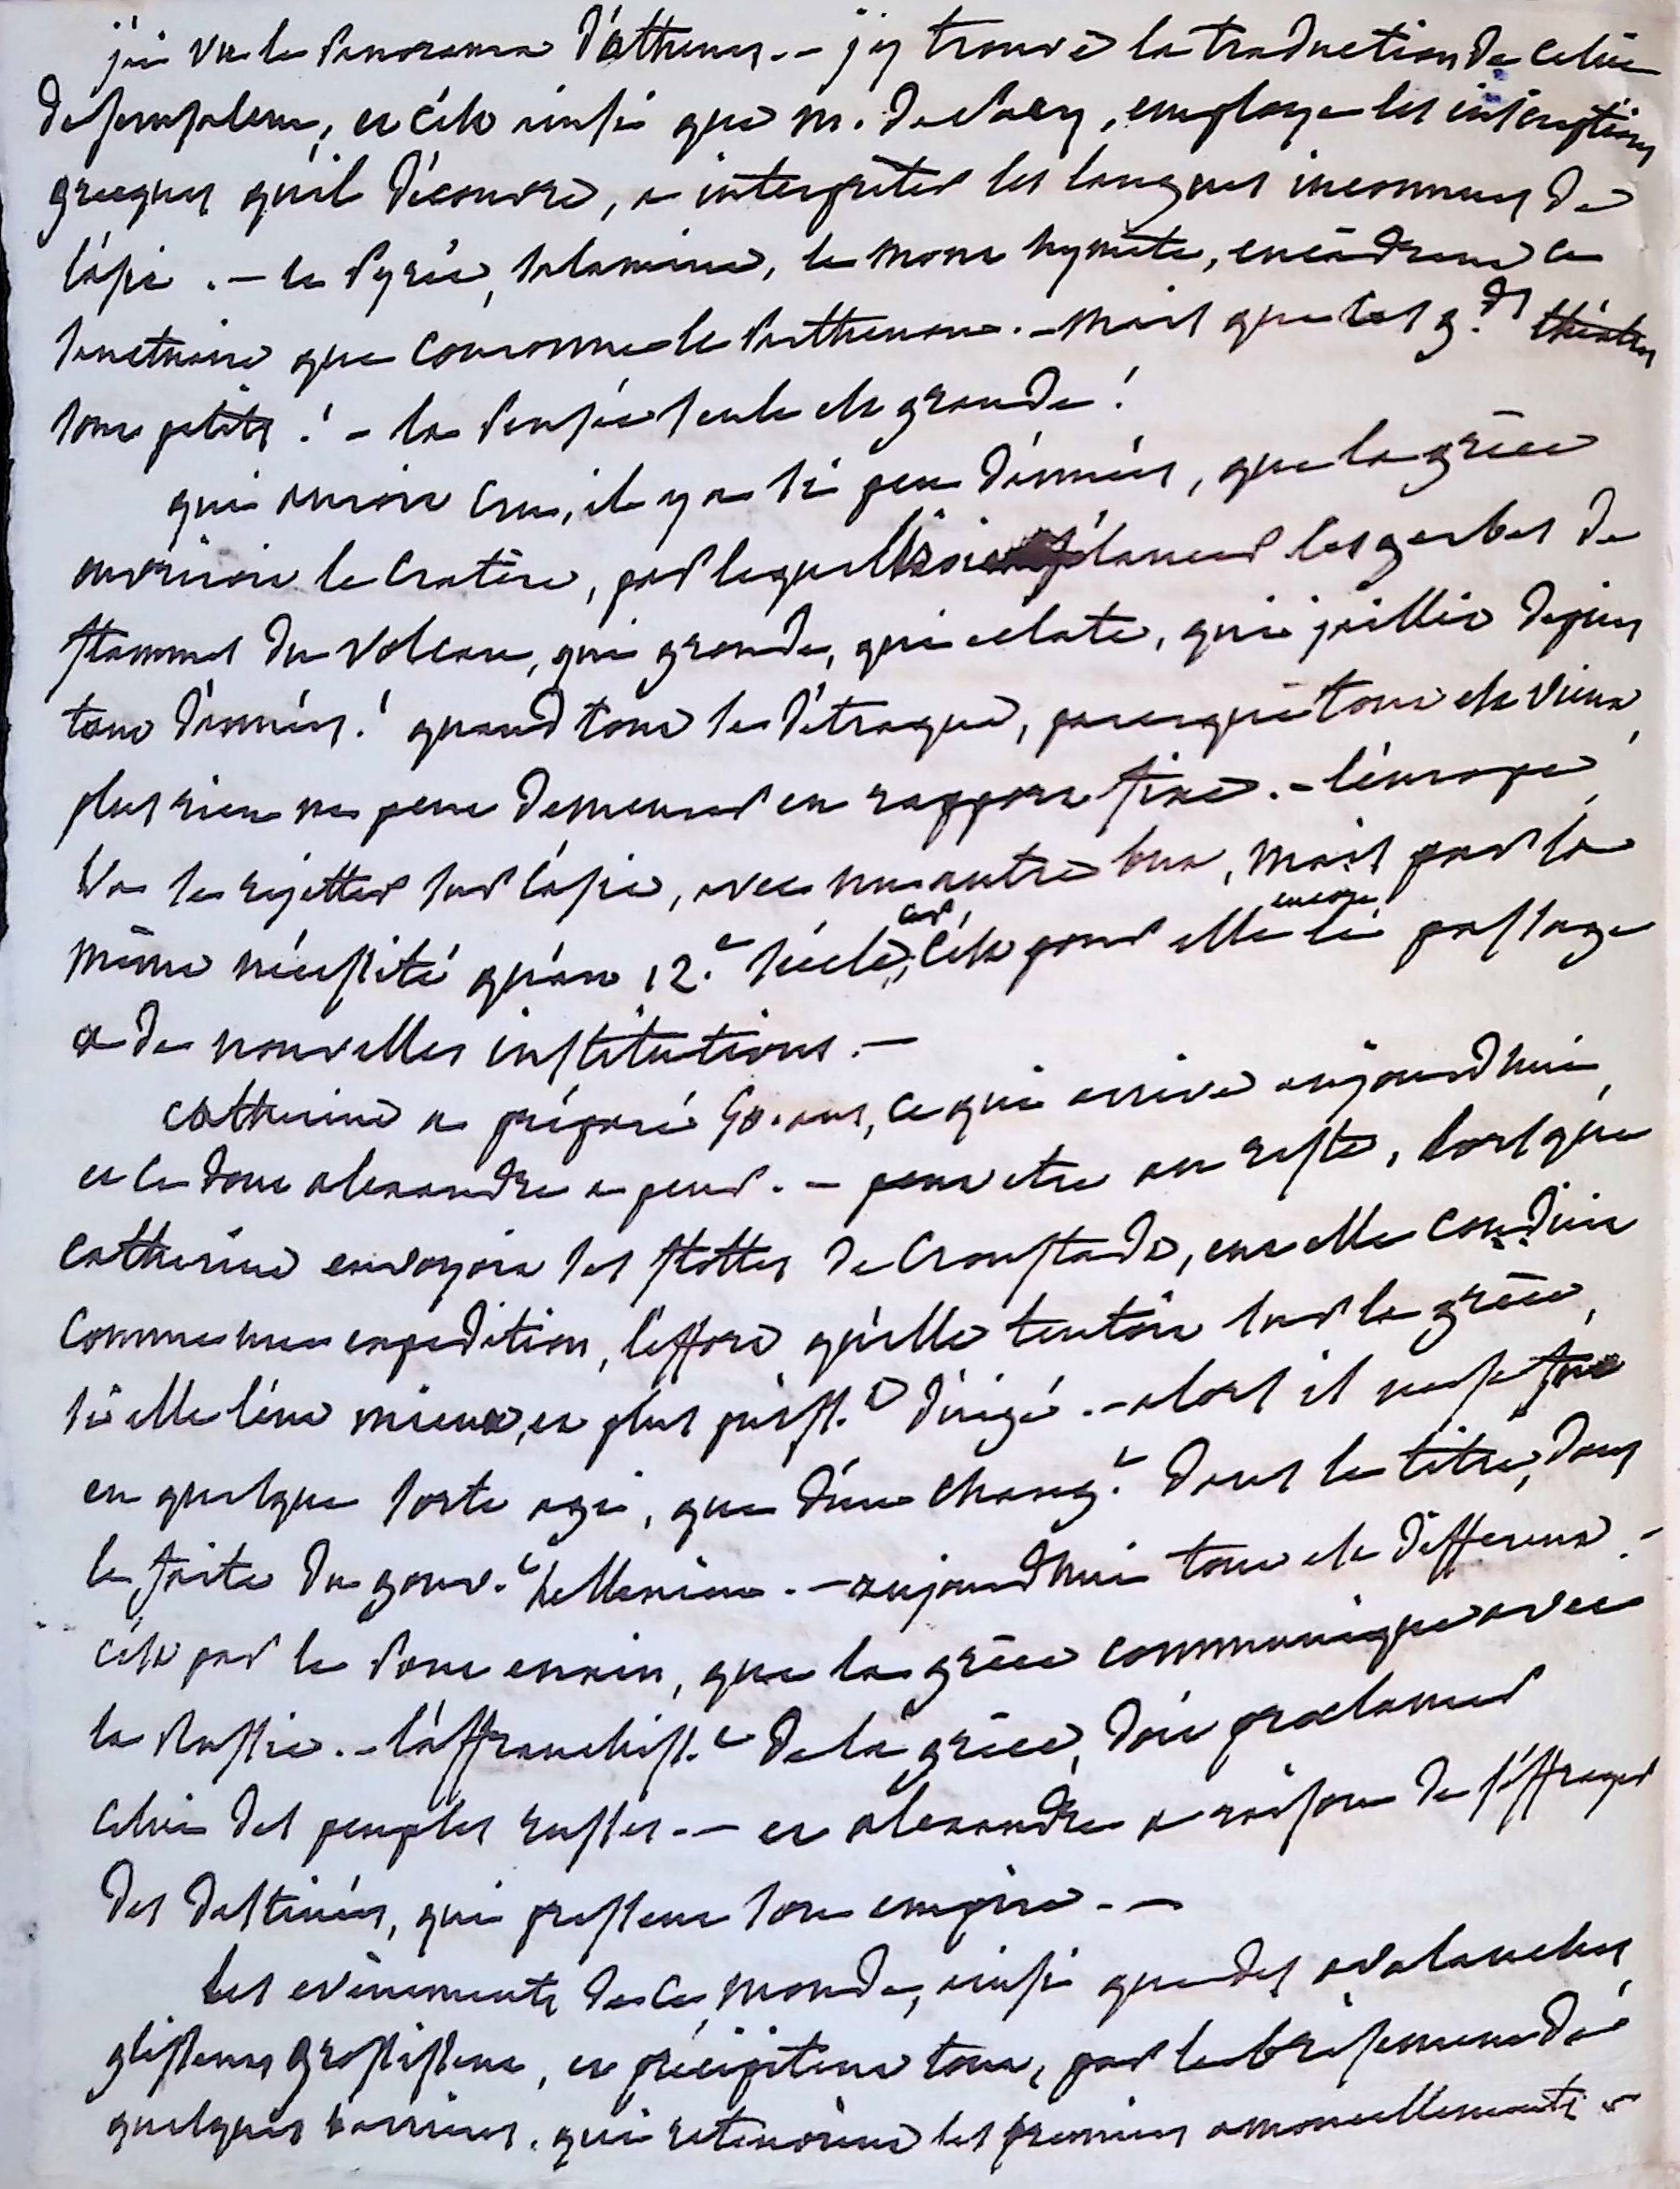 j'ai vu le Panorama d'athenes. – j'y trouve la traduction de celui
de jerusalem, et c'est ainsi que m. de Sacy, employe les inscriptions
grecques qu'il découvre, a interpréter les langues inconnues de
l'asie. – le Pyrée, salamine, le mont hymete, encadrent ce
sanctuaire que couronne le Parthenon. – mais que les g.ds théatres
sont petits ! – la Pensée seule est grande !
qui auroit cru, il y a si peu d'années, que la grèce
ouvriroit le cratère, par lequel s'élancer les gerbes de
flammes du volcan, qui gronde, qui eclate, qui jaillit depuis
tant d'années ! quand tout se détraque, parceque tout est vieux,
plus rien ne peut demeurer en rapport fixe. – l'europe,
va se rejetter sur l'asie, avec un autre but, mais par la
même nécessité qu'au 12.e siècle, car, c'est pour elle encore le passage
a de nouvelles institutions. –
catherine a préparé 50. ans, ce qui arrive aujourdhui,
et ce dont alexandre a peur. – peut etre au reste, lorsque
catherine envoyoit ses flottes de Cronstadt, eut elle conduit
comme une expedition, l'effort qu'elle tentoit sur la grèce,
si elle l'eut mieux, et plus puiss.t dirigé. – alors il ne se fut
en quelque sorte agi, que d'un chang.t dans le titre, dans
le faite du gouv.t hellenien. – aujourdhui tout est different. –
c'est par le Pont euxin, que la grèce communique avec
la Russie. – l'affranchiss.t de la grèce, doit proclamer
celui des peuples russes. – et alexandre a raison de s'effrayer
des destinées, qui pressent son empire. –
les evènements de ce monde, ainsi que des avalanches,
glissent, grossissent, et précipitent tout, par le brisement de
quelques barrieres, qui retenoient les premiers amoncellements